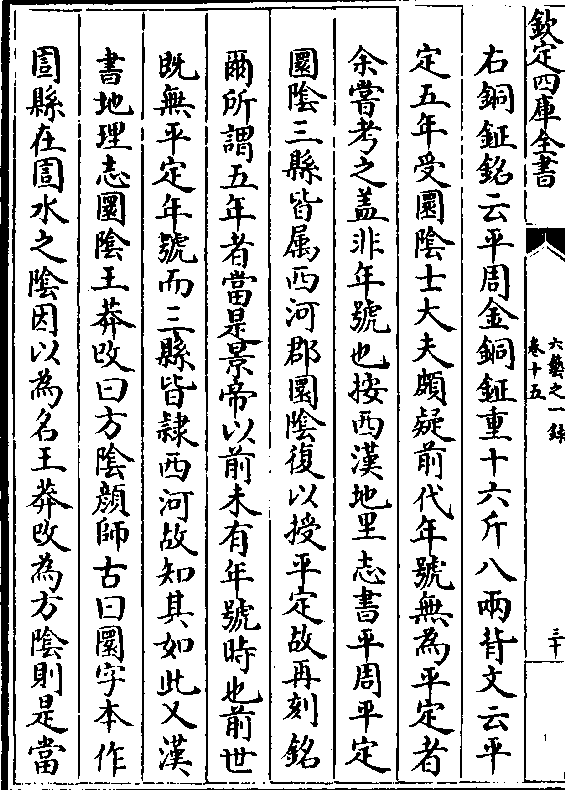 欽定四庫全書
六藝之一錄
卷十五
三十
右銅鉦銘云平周金銅鉦重十六斤八兩背文云平
定五年受圜陰士大夫頗疑前代年號無為平定者
余嘗考之盖非年號也按西漢地里志書平周平定
圜陰三縣皆属西河郡圜陰復以授平定故再刻銘
爾所謂五年者當是景帝以前未有年號時也前世
既無平定年號而三縣皆隸西河故知其如此又漢
書地理志圜陰王莽改曰方陰顔師古曰圜字本作
圁縣在圁水之陰因以為名王莽改為方陰則是當